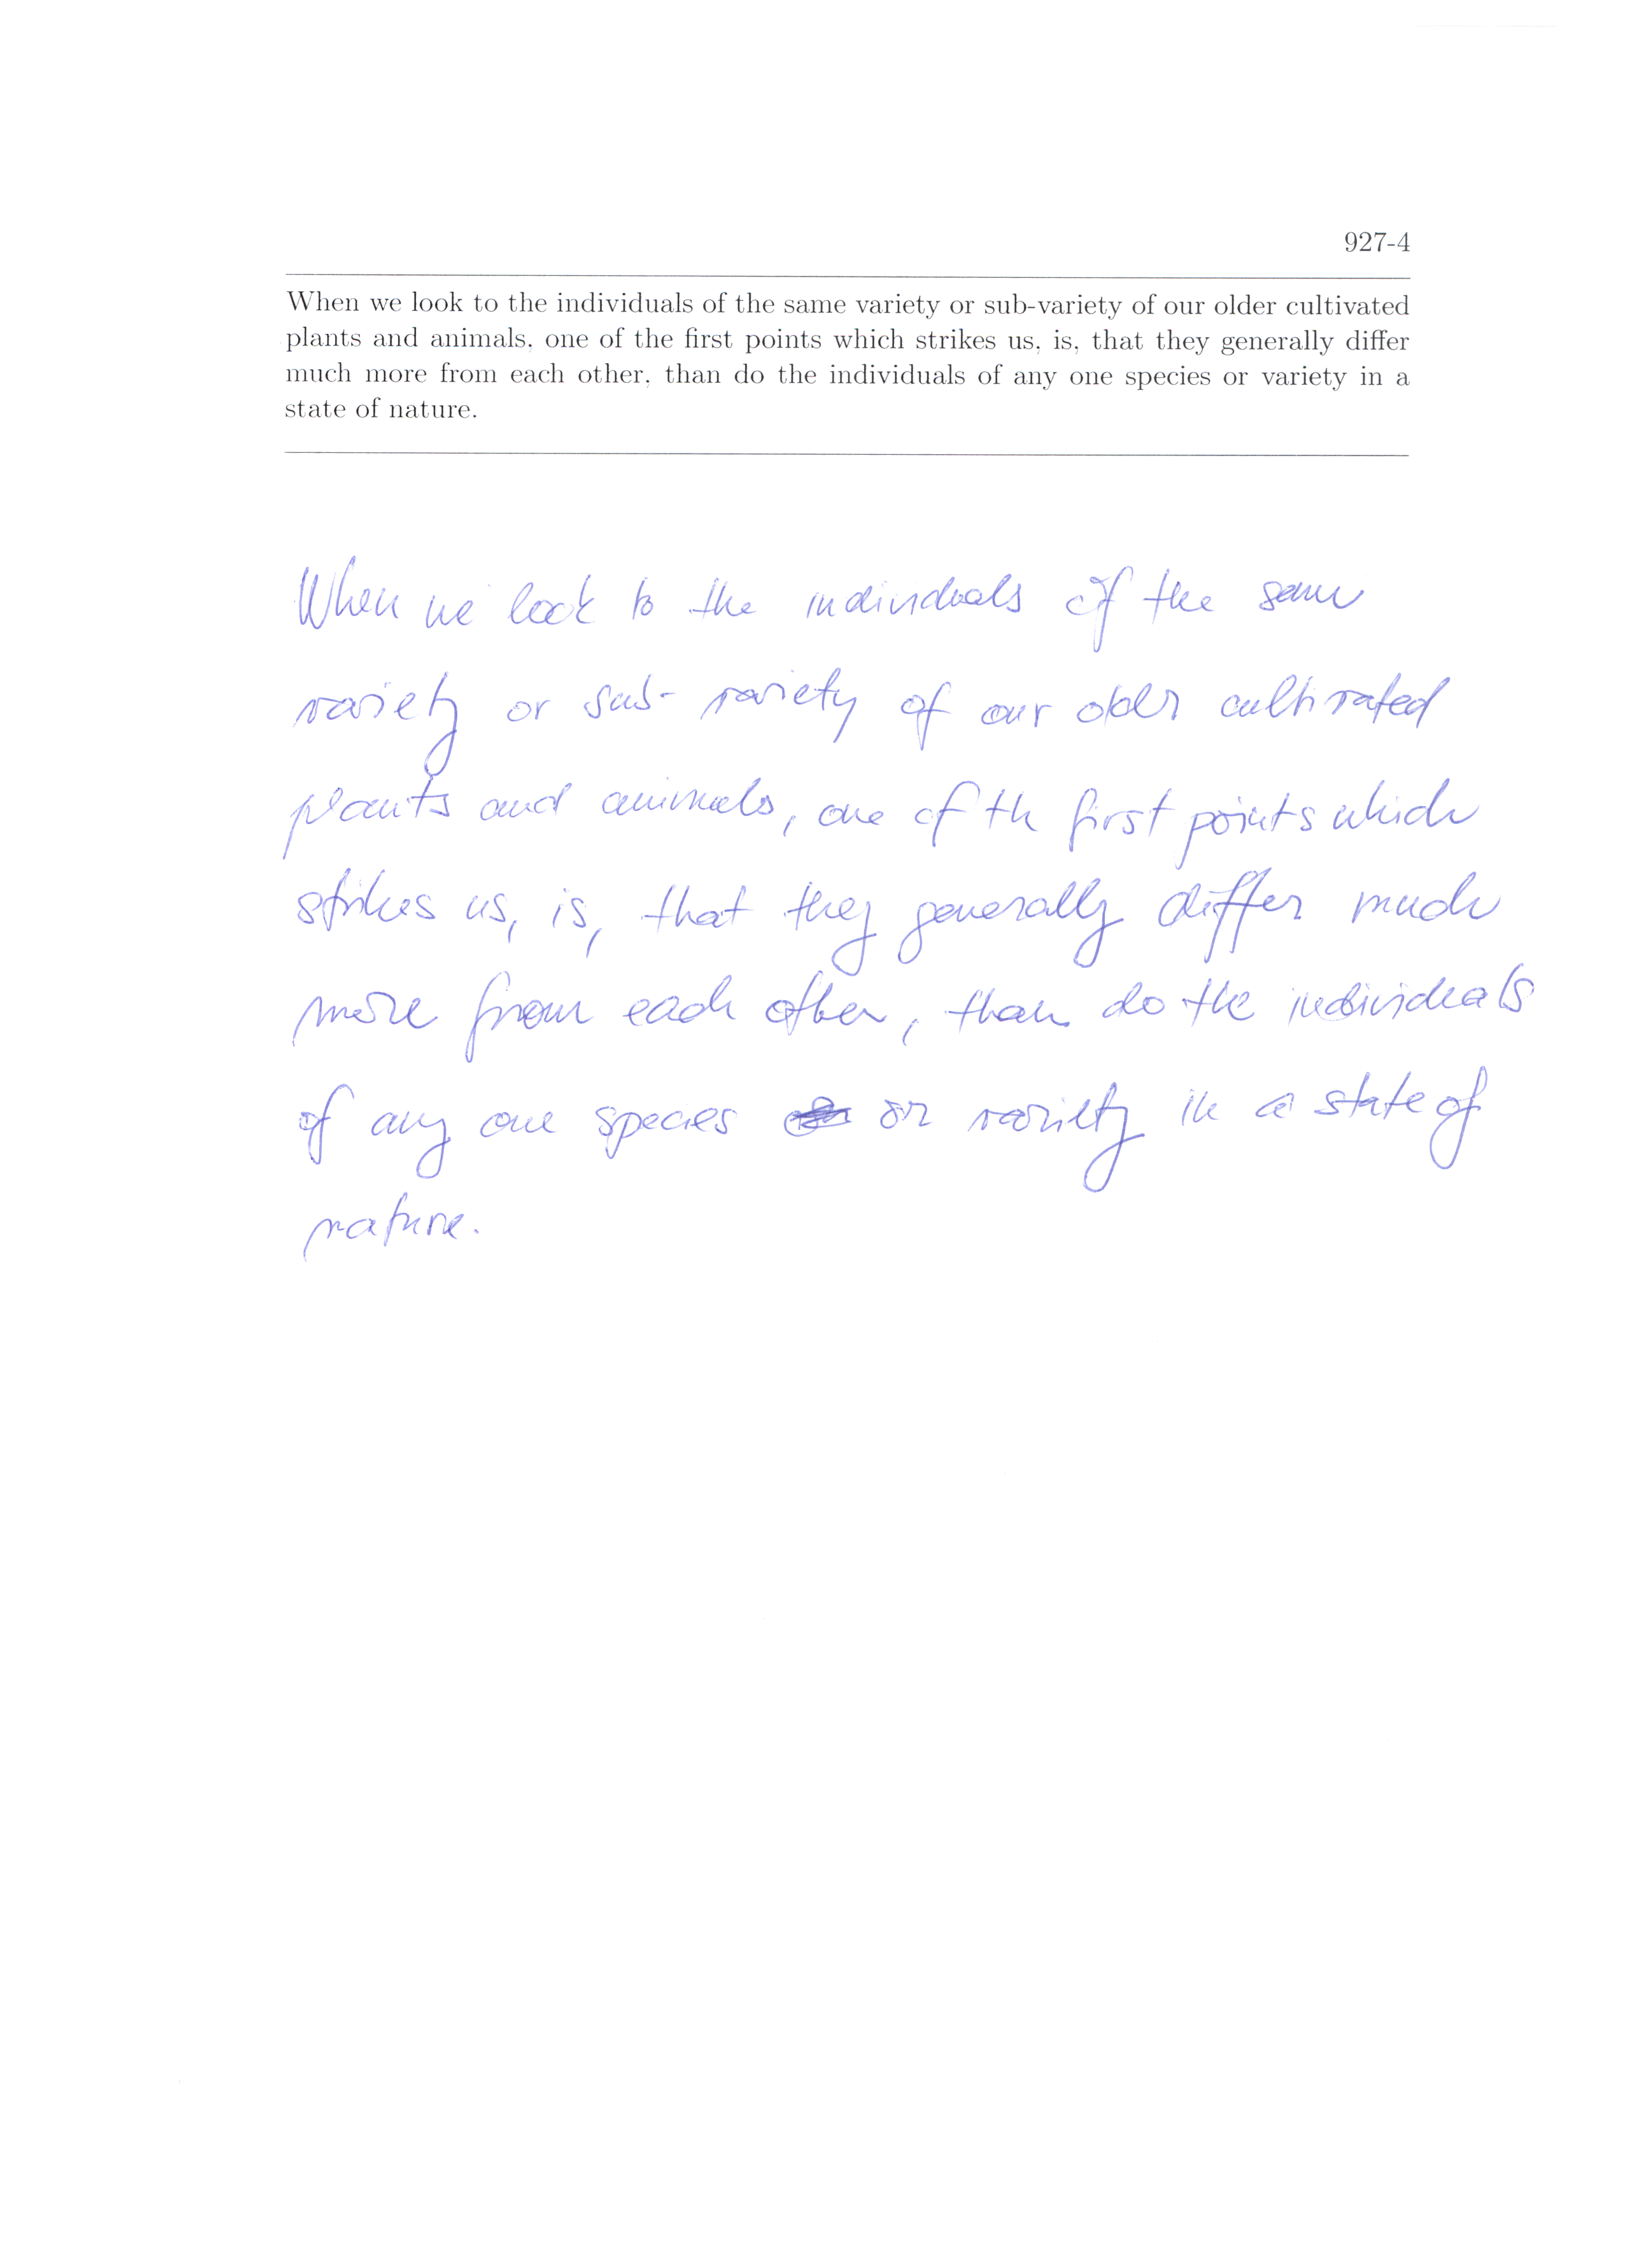 927-4
When we look to the individuals of the same variety or sub-variety of our older cultivated
plants and animals, one of the first points which strikes us, is, that they generally differ
much more from each other, than do the individuals of any one species or variety in a
state of nature.
When we look to the individuals of the same
variety or sub- variety of our older cultivated
plants and animals, one of th first points which
strikes us, is, that they generally differ much
more from each other, than do the individuals
of any one species or variety in a state of
nature.